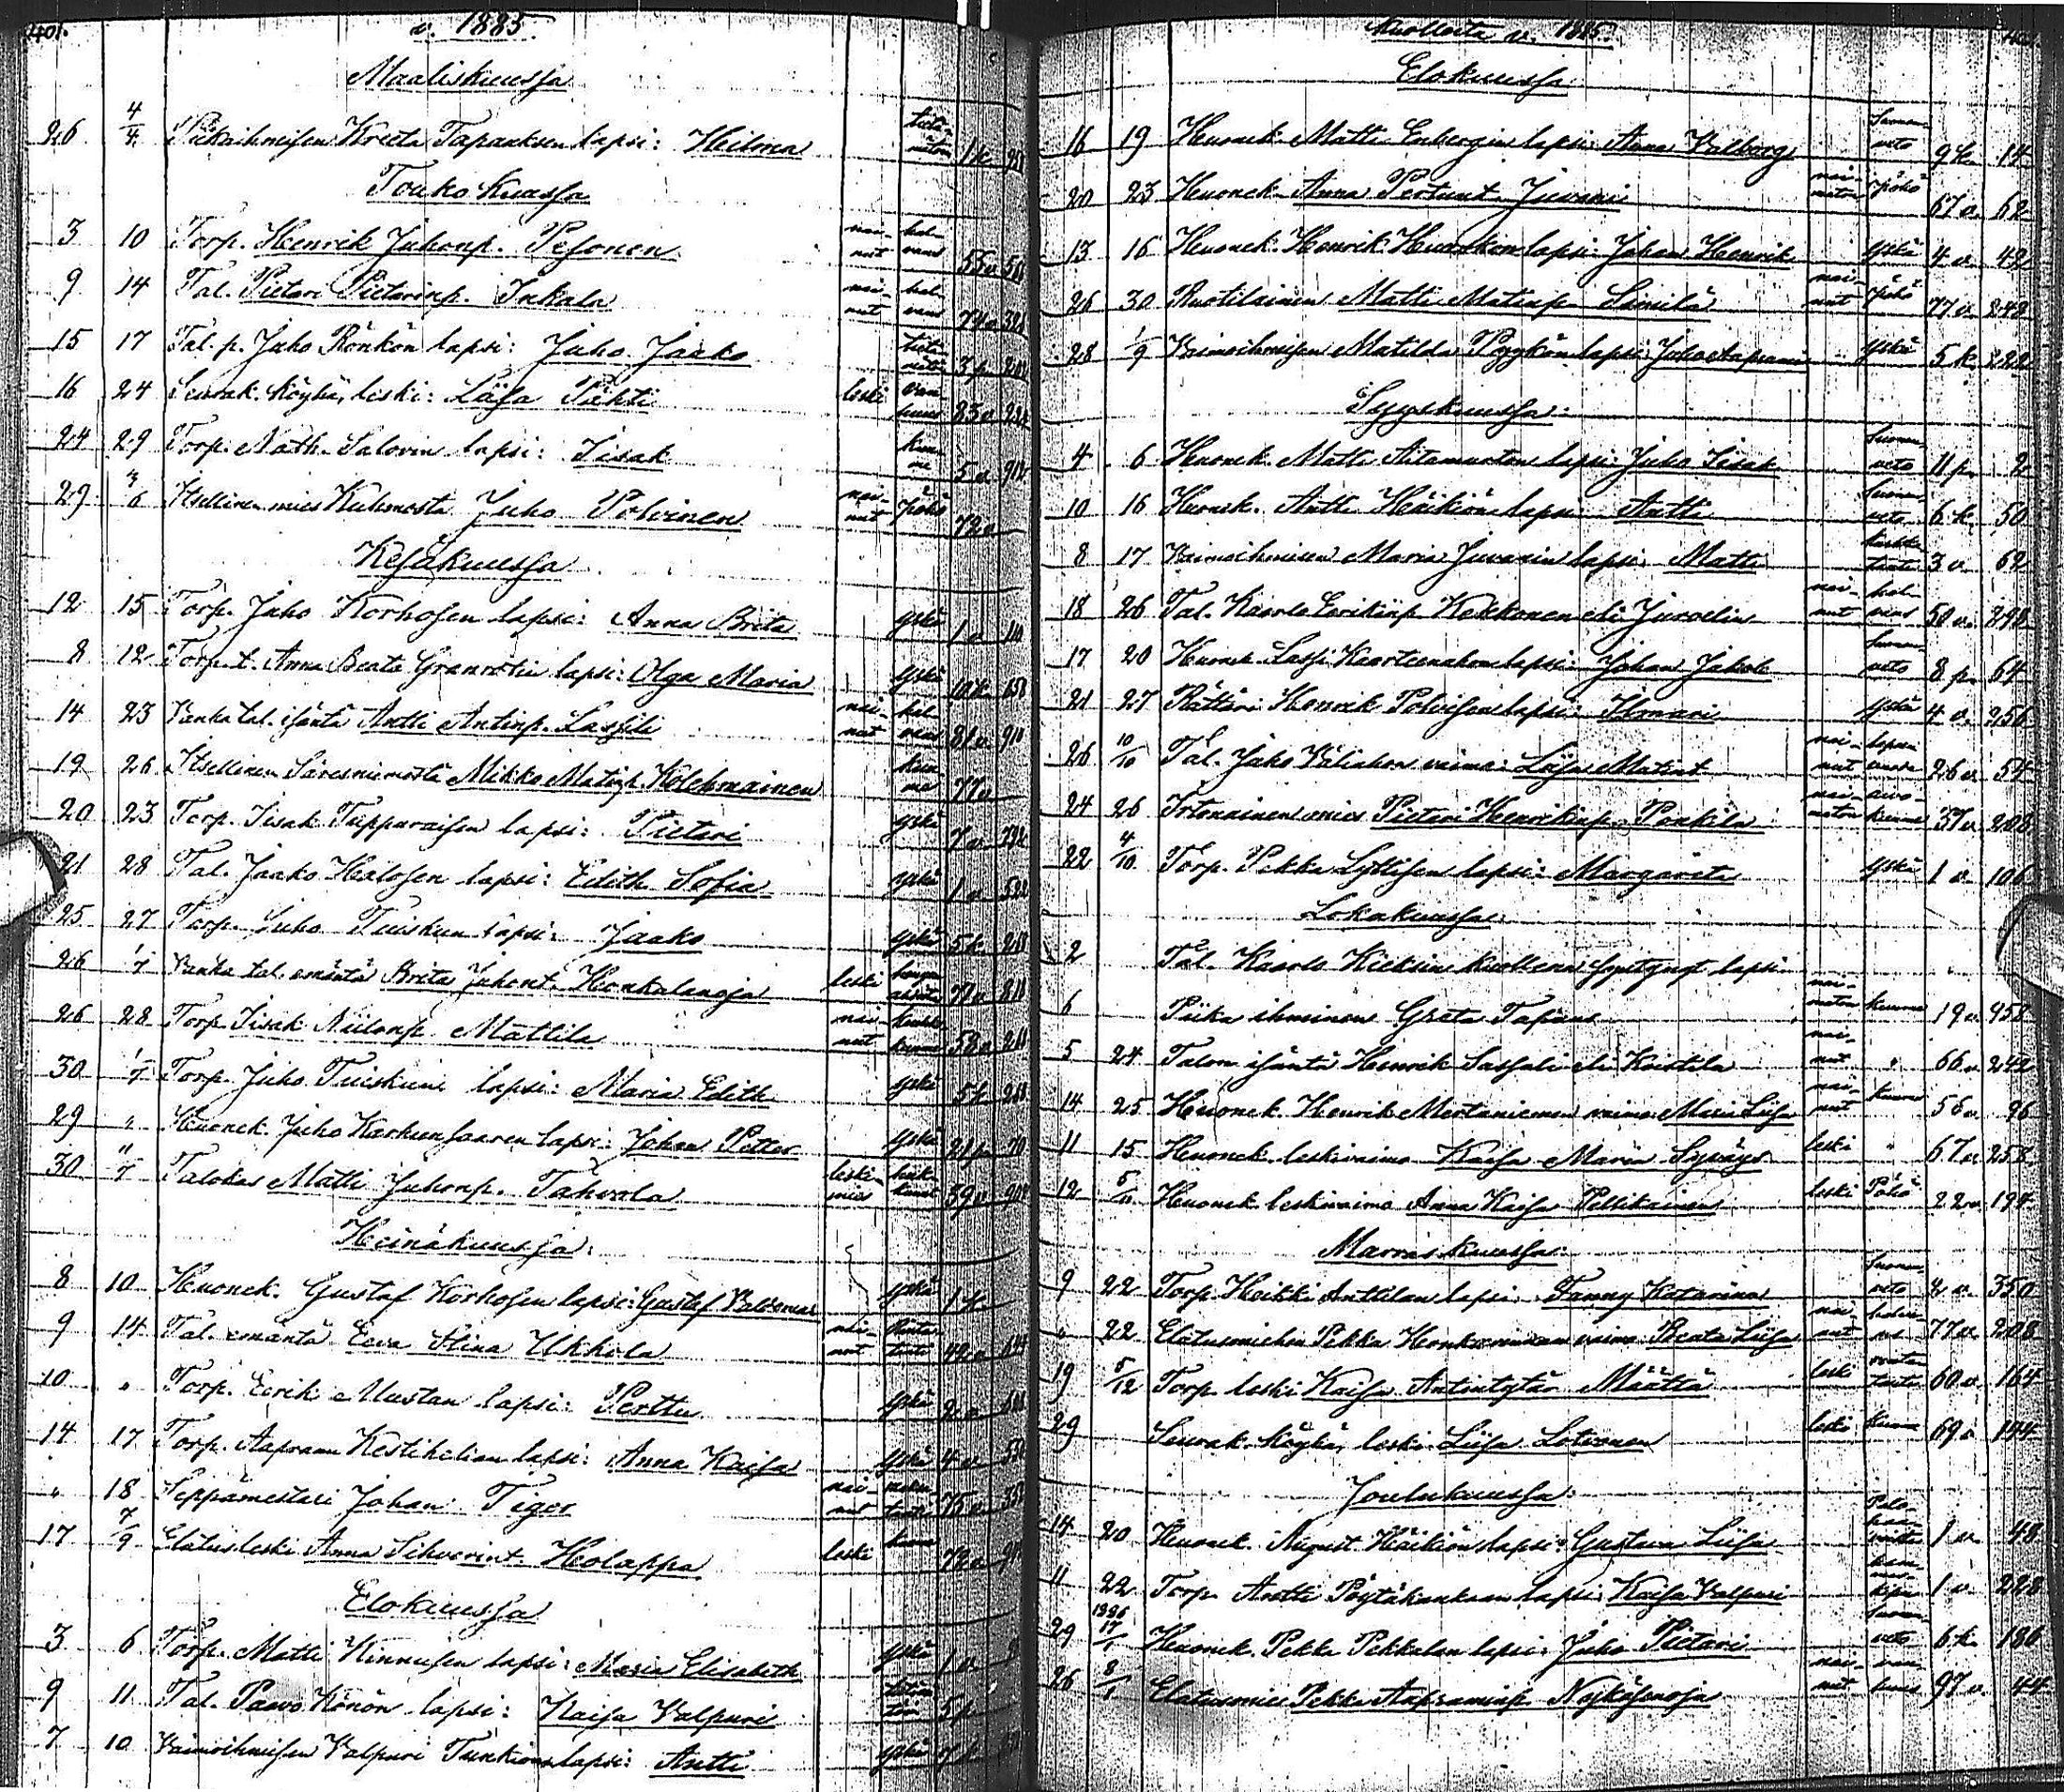 401.
v. 1885.
Maaliskuussa
26 4/4 Piikaihmisen Kreeta Tapanksen lapsi: Heilma 1 k
Toukokuussa
3 10 Torp. Henrik Juhonp. Pesonen nai-nut hal-vaus 55 v
9 14 Tal. Pietari Pietarinp. Inkala nai-nut hal-vaus 74 v
15 17 Tal. p. Juho Rönkön lapsi: Juho Jaako 3 p
16 24 Seurak. köyhä, leski: Liisa Tähti leski van-huus 83 v
24 29 Torp. Math. Salovin lapsi: Iisak kuu-me 5 v
29 3/6 Itsellinen mies Kuhmosta Juho Polvinen nai-nut pöhö 72 v
Kesäkuussa
12 15 Torp. Juho Korhosen lapsi: Anna Brita yskä 1 v
8 12 Torp. t. Anna Beata Granrotin lapsi: Olga Maria yskä 10 k
14 23 Vanha tal. isäntä Antti Antinp. Lassila nai-nut hal-vaus 81 v
19 26 Itsellinen Säresniemestä Mikko Matinp. Kolehmainen kuu-me 77 v
20 23 Torp. Iisak Tupparaisen lapsi: Pietari yskä 7 v
21 28 Tal. Jaako Halosen lapsi: Edith Sofia yskä 1 v
25 27 Torp. Juho Tuiskun lapsi: Jaako yskä 5 k
26 1/7 Vanha tal. emäntä Brita Juhont. Honkalanoja leski 71 v
26 28 Torp. Iisak Niilonp. Mattila nai-nut 58 v
30 1/7 Torp. Juho Tuiskuni lapsi: Maria Edith yskä 5 k
29 " Huonek. Juho Karhunsaaren lapsi: Johan Petter yskä 21 p 70
30 11/7 Talokas Matti Juhonp. Tahvola leski-mies 59 v
Heinäkuussa:
8 10 Huonek. Gustaf Korhosen lapsi: Gustaf Valdemar yskä 1 k
9 14 Tal. emäntä Eeva Stina Ukkola nai-nut 42 v
10 " Torp. Eerik Mustan lapsi: Perttu yskä 2 v
14 17 Torp. Aapramu Kestikelian lapsi: Anna Kaisa yskä 4 v
" 18 Seppämestari Johan Tiger nai-nut 75 v
17 7/9 Elätusleski Anna Sihverint. Holappa leski kuume 72 v
Elokuussa
3 6 Torp. Matti Kinnusen lapsi: Maria Elisabeth yskä 1 v
9 11 Tal. Paavo Könön lapsi: Kaisa Valpuri 5 p
7 10 Vaimoihmisen Valpuri Turskions lapsi: Antti yskä
Kuolleita v. 1885.
Elokuussa
16 19 Huonek. Matti Enbergin lapsi: Anna Valborg Suonen-veto 9 k 14
20 23 Huonek. Anna Pertunt. Juvani nai-maton pöhö 67 v. 62
13 16 Huonek. Henrik Huuskon lapsi: Johan Henrik yskä 4 v. 42
26 30 Ruotilainen Matti Matinp. Samila nai-nut pöhö 77 v. 248
28 1/9 Vaimoihmisen Matilda Pyykön lapsi: Juho Aaprami yskä 5 k. 222
Syyskuussa:
4 6 Huonek. Matti Aitamurton lapsi: Juho Iisak Suonen-veto 11 p. 2
10 16 Huonek. Antti Häikiön lapsi: Antti Suonen-veto 6 k. 50
8 17 Vaimoihmisen Maria Juvanin lapsi: Matti 3 v. 62
18 26 Tal. Kaarlo Eerikinp. Kekkonen eli Jurvelin nai-nut hal-vaus 50 v. 292
17 20 Huonek. Lassi Kaarteenahon lapsi: Johan Jakob Suonen-veto 8 p. 64
21 27 Rättäri Henrik Polvisen lapsi: Ilmari yskä 4 v. 256
26 10/10 Tal. Juho Väliahon vaimo: Liisa Matint. nai-nut 26 v. 54
24 26 Irtonainen mies Pietari Henrikinp. Pankila nai-maton 37 v. 208
22 4/10 Torp. Pekka Lyttisen lapsi: Margareta yskä 1 v. 106
Lokakuussa:
2 Tal. Kaarlo Kieksin kuollena syntynyt lapsi
6 Piika ihminen Greta Tapans nai-maton kuume 19 v. 958
5 24 Talon isäntä Henrik Sassali eli Koistila nai-nut " 66 v. 242
14 25 Huonek. Henrik Mertaniemen vaimo Maria Liisa nai-nut kuume 56 v. 96
11 15 Huonek. leskivaimo Kaisa Maria Syväys leski " 67 v. 258
12 5/11 Huonek. leskivaimo Anna Kaisa Pellikainen leski Pöhö 22 v. 194
Marraskuussa:
9 22 Torp. Heikki Anttilan lapsi: Fanny Katarina Suonen-veto 2 v. 350
" 22 Elätusmiehen Pekka Honkavaaran vaimo Beata Liisa nai-nut 77 v. 208
19 5/12 Torp. leski Kaisa Antintytär Määttä leski rinta-tauti 60 v. 164
29 Seurak. köyhä, leski Liisa Lotvonen leski kuume 69 v. 144
Joulukuussa:
14 20 Huonek. August Häikiön lapsi: Gustava Liisa 1 v. 48
11 22 Torp. Antti Pöytäkankaan lapsi: Kaisa Valpuri 1 v. 228
29 1886 17/1 Huonek. Pekka Pekkalan lapsi: Juho Pietari Suonen-veto 6 k. 186
26 8/1 Elatusmies Pekka Aapraminp. Nykäsenoja nai-nut van-huus 97 v. 44